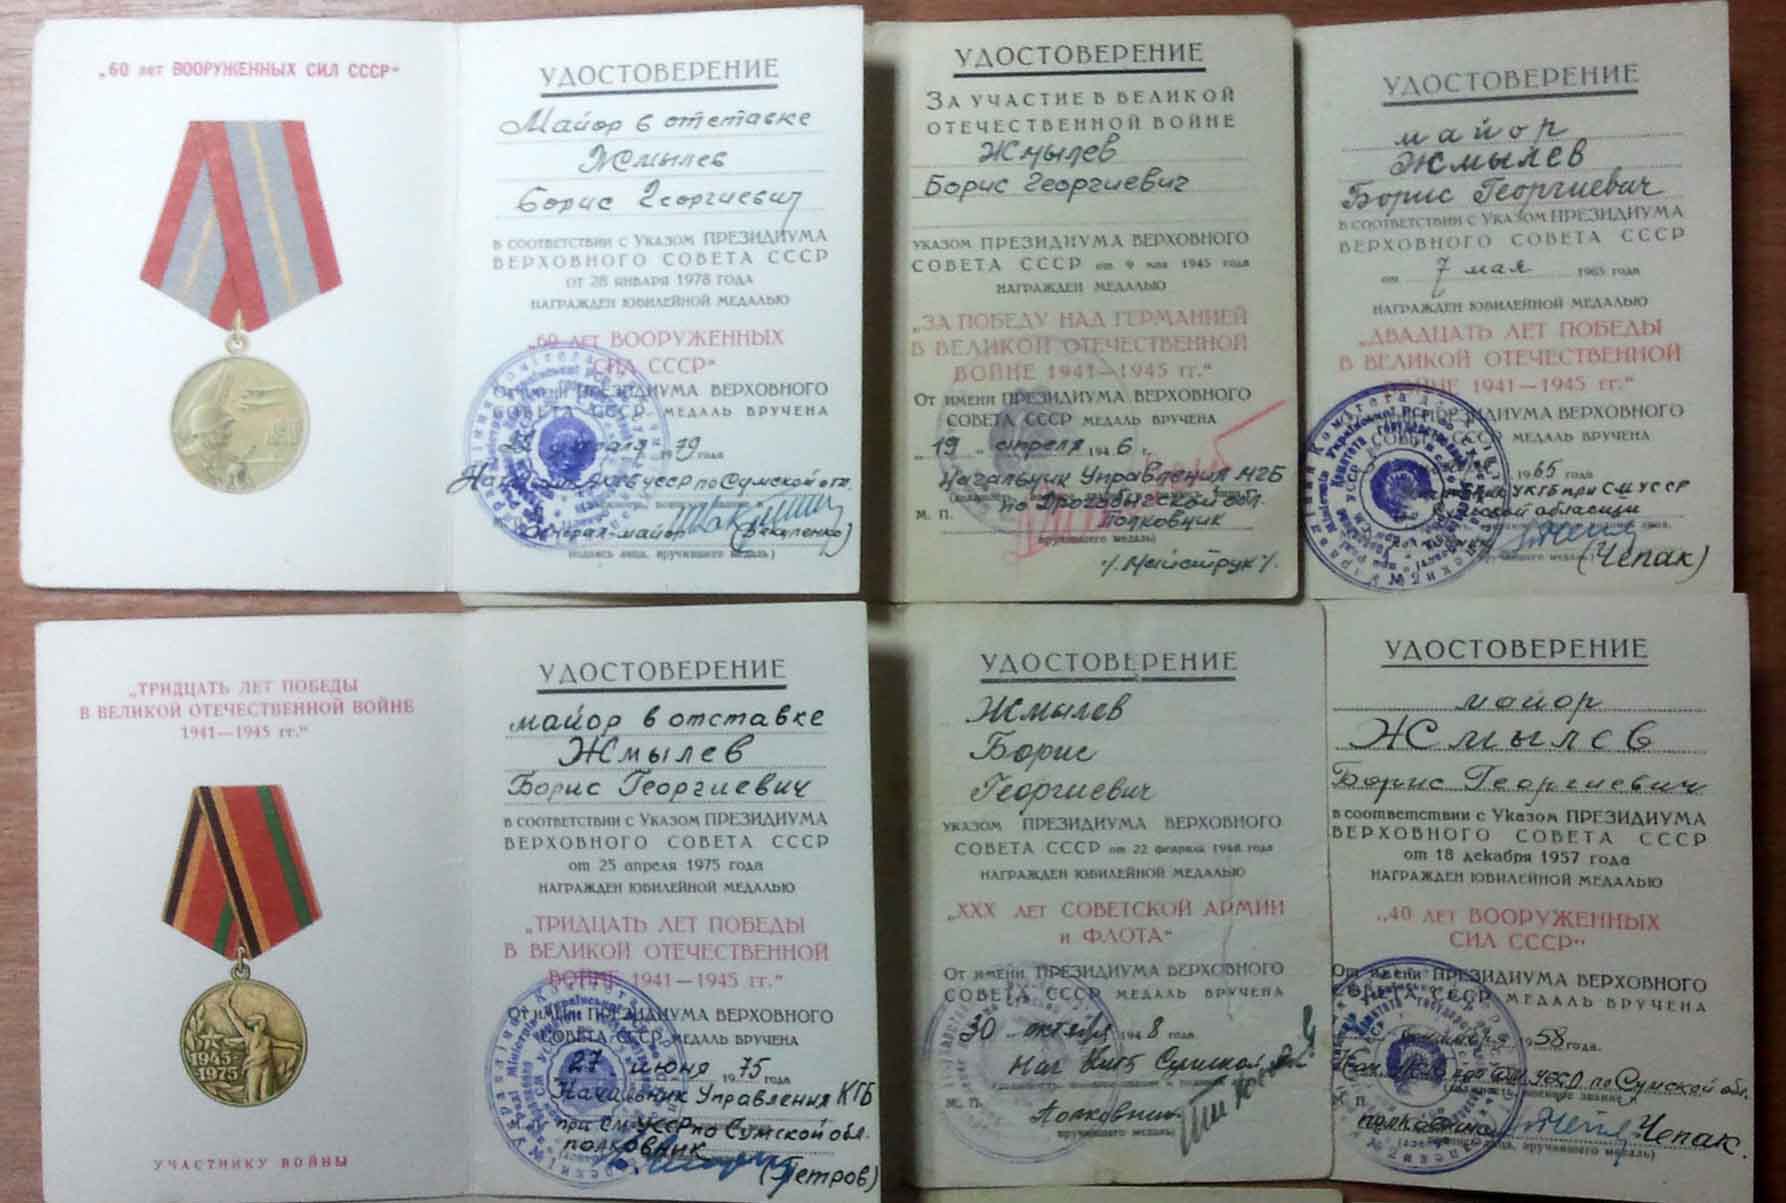 „60 лет ВООРУЖЕННЫХ СИЛ СССР"
УДОСТОВЕРЕНИЕ
Майор в отставке
Жмылев
Борис Георгиевич
в соответствии с Указом ПРЕЗИДИУМА
ВЕРХОВНОГО СОВЕТА СССР
от 28 января 1978 года
НАГРАЖДЕН ЮБИЛЕЙНОЙ МЕДАЛЬЮ
„60 ЛЕТ ВООРУЖЕННЫХ
СИЛ СССР"
От имени ПРЕЗИДИУМА ВЕРХОВНОГО
СОВЕТА СССР МЕДАЛЬ ВРУЧЕНА
1979 года
УССР по Сумской обл.
Генерал-майор
(подпись лица, вручившего медаль)
УДОСТОВЕРЕНИЕ
ЗА УЧАСТИЕ В ВЕЛИКОЙ
ОТЕЧЕСТВЕННОЙ ВОЙНЕ
Жмылев
Борис Георгиевич
УКАЗОМ ПРЕЗИДИУМА ВЕРХОВНОГО
СОВЕТА СССР от 9 мая 1945 года
НАГРАЖДЕН МЕДАЛЬЮ
„ЗА ПОБЕДУ НАД ГЕРМАНИЕЙ
В ВЕЛИКОЙ ОТЕЧЕСТВЕННОЙ
ВОЙНЕ 1941—1945 гг."
От имени ПРЕЗИДИУМА ВЕРХОВНОГО
СОВЕТА СССР МЕДАЛЬ ВРУЧЕНА
„19" апреля 1946 г.
Начальник Управления МГБ
по Дрогобычской обл.
М. П.
Полковник
вручившего медаль)
/. Майструк /.
УДОСТОВЕРЕНИЕ
майор
Жмылев
Борис Георгиевич
В СООТВЕТСТВИИ С УКАЗОМ ПРЕЗИДИУМА
ВЕРХОВНОГО СОВЕТА СССР
от 7 мая 1965 года
НАГРАЖДЕН ЮБИЛЕЙНОЙ МЕДАЛЬЮ
„ДВАДЦАТЬ ЛЕТ ПОБЕДЫ
В ВЕЛИКОЙ ОТЕЧЕСТВЕННОЙ
ВОЙНЕ 1941—1945 гг."
ПРЕЗИДИУМА ВЕРХОВНОГО
СОВЕТА СССР МЕДАЛЬ ВРУЧЕНА
1965 года
УКГБ при СМ УССР
Сумской области
(Чепак)
„ТРИДЦАТЬ ЛЕТ ПОБЕДЫ
В ВЕЛИКОЙ ОТЕЧЕСТВЕННОЙ ВОЙНЕ
1941—1945 гг."
1945-
1975
УЧАСТНИКУ ВОЙНЫ
УДОСТОВЕРЕНИЕ
майор в отставке
Жмылев
Борис Георгиевич
в соответствии с Указом ПРЕЗИДИУМА
ВЕРХОВНОГО СОВЕТА СССР
от 25 апреля 1975 года
НАГРАЖДЕН ЮБИЛЕЙНОЙ МЕДАЛЬЮ
„ТРИДЦАТЬ ЛЕТ ПОБЕДЫ
В ВЕЛИКОЙ ОТЕЧЕСТВЕННОЙ
ВОЙНЕ 1941—1945 гг."
От имени ПРЕЗИДИУМА ВЕРХОВНОГО
СОВЕТА СССР МЕДАЛЬ ВРУЧЕНА
27 июня 1975 года
Начальник Управления КГБ
при СМ УССР по Сумской обл.
полковник
(Петров)
УДОСТОВЕРЕНИЕ
Жмылев
Борис
Георгиевич
УКАЗОМ ПРЕЗИДИУМА ВЕРХОВНОГО
СОВЕТА СССР от 22 февраля 1948 года
НАГРАЖДЕН ЮБИЛЕЙНОЙ МЕДАЛЬЮ
„XXX ЛЕТ СОВЕТСКОЙ АРМИИ
и ФЛОТА"
От имени ПРЕЗИДИУМА ВЕРХОВНОГО
СОВЕТА СССР МЕДАЛЬ ВРУЧЕНА
30 октября 1948 года
Нач Сумской
М. П.
Полковник
вручившего медаль)
УДОСТОВЕРЕНИЕ
майор
Жмылев
Борис Георгиевич
в соответствии с Указом ПРЕЗИДИУМА
ВЕРХОВНОГО СОВЕТА СССР
от 18 декабря 1957 года
НАГРАЖДЕН ЮБИЛЕЙНОЙ МЕДАЛЬЮ
„40 ЛЕТ ВООРУЖЕННЫХ
СИЛ СССР"
От имени ПРЕЗИДИУМА ВЕРХОВНОГО
СОВЕТА СССР МЕДАЛЬ ВРУЧЕНА
1958 года.
при СМ УССР по Сумской обл.
М. П.
полковник
Чепак.
вручившего медаль)